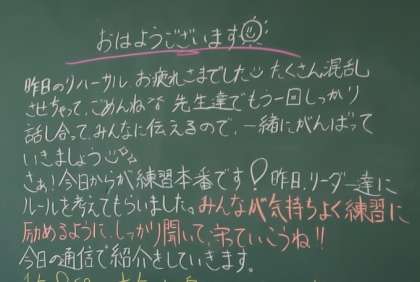 おはようございます
昨日のリハーサル お疲れさまでした たくさん混乱
させちゃって、ごめんね 先生達でもう一回しっかり
話し合って、みんなに伝えるので、一緒にがんばって
いきましょう
さぁ!今日からが練習本番です!昨日、リーダー達に
ルールを考えてもらいました。みんなが気持ちよく練習に
励めるように、しっかり聞いて、守っていこうね!!
今日の通信で紹介をしていきます。